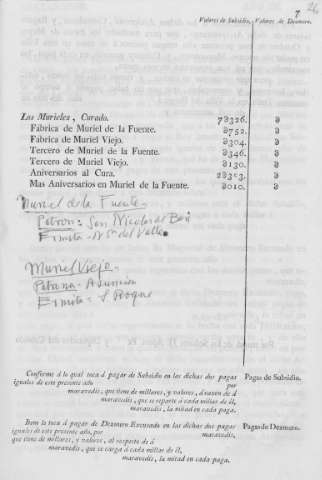 7
26
Valores de Subsidio, Valores de Deanura.
Los Murieles, Curado. 7ϑ326. ϑ
Fabrica de Muriel de la Fuente. ϑ752. ϑ
Fabrica de Muriel Viejo. ϑ304. ϑ
Tercero de Muriel de la Fuente. ϑ346. ϑ
Tercero de Muriel Viejo. ϑ130. ϑ
Aniversarios al Cura. ϑ
Mas Aniversarios en Muriel de la Fuente. ϑ010. ϑ
Muriel de la Fuente-
Patron: San Nicolas de Bari
Ermita - Nª Sª del Valle
Muriel Viejo-
Patrona- Asunción
Ermita- S. Roque
Conforme á lo qual toca á pagar de Subsidio en las dichas dos pagas Pagas de Subsidio.
iguales de este presente año por
maravedis, que tiene de millares, y valores, á razon de á
maravedis, que se reparte á cada millar de él,
maravedis, la mitad en cada paga.
Item le toca á pagar de Deanura Escusada en las dichas dos pagas Pagas de Deanura.
iguales de este presente año, por maravedis,
que tiene de millares, y valores, al respecto de á
maravedis, que se carga á cada millar de él,
maravedis, la mitad en cada paga.